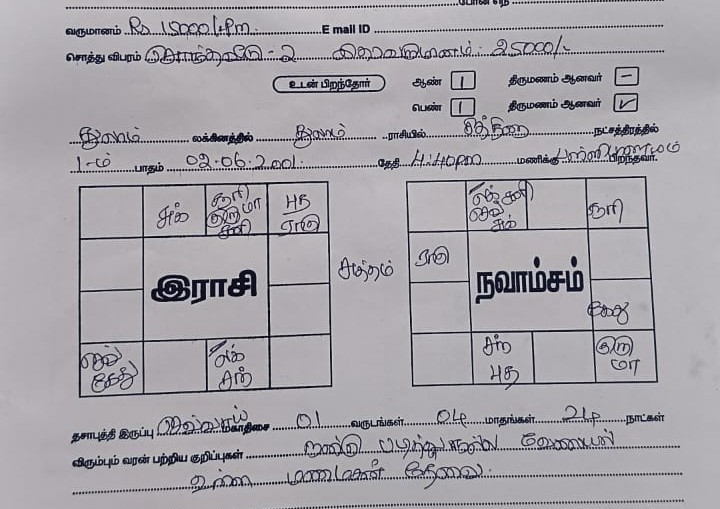 வருமானம் Rs 15000/-Pm E mail ID
சொத்து விபரம் சொந்தவீடு - 2 25000/-
உடன் பிறந்தோர் ஆண் 1 திருமணம் ஆனவர் -
பெண் 1 திருமணம் ஆனவர் ✓
துலாம் லக்கினத்தில் துலாம் ராசியில் சித்திரை நட்சத்திரத்தில்
1-ம் பாதம் 02.06.2001 தேதி 4:40pm மணிக்கு பிறந்தவர்.
சுக் சூரி குரு மா சனி புத ராகு
இராசி
செவ் கேது லக் சந்
சுத்தம்
லக் சனி செவ் சுக் சூரி
ராகு
நவாம்சம்
கேது
சந் புத குரு மா
தசாபுத்தி இருப்பு செவ்வாய் மகாதிசை 01 வருடங்கள் 04 மாதங்கள் 24 நாட்கள்
விரும்பும் வரன் பற்றிய குறிப்புகள் நன்கு படித்து நல்ல வேலையில்
உள்ள மணமகன் தேவை.